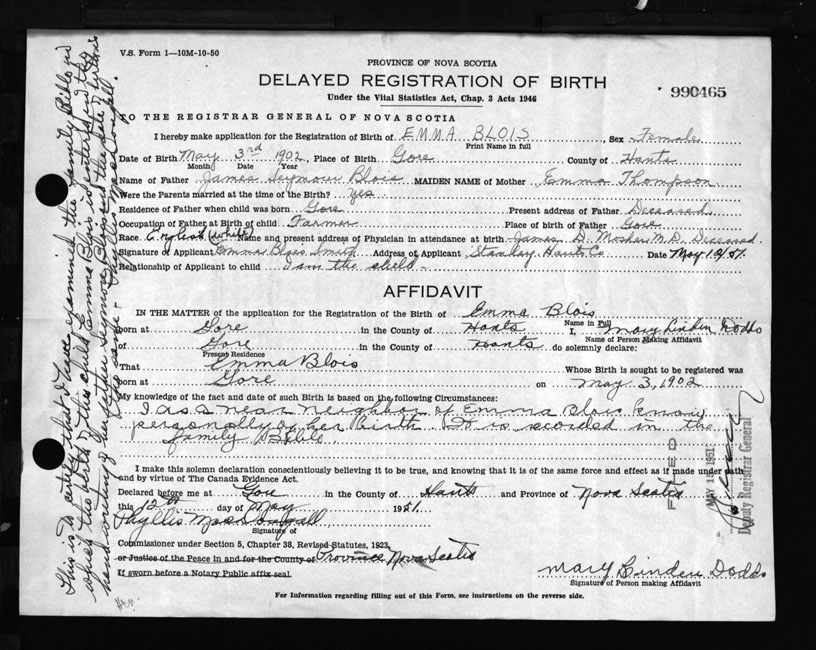 V.S. Form 1—10M-10-50
PROVINCE OF NOVA SCOTIA
DELAYED REGISTRATION OF BIRTH
Under the Vital Statistics Act, Chap. 3 Acts 1946
990465
TO THE REGISTRAR GENERAL OF NOVA SCOTIA
I hereby make application for the Registration of Birth of EMMA BLOIS, Sex Female
Print Name in full
Date of Birth May 3rd 1902, Place of Birth Gore County of Hants
Month Date Year
Name of Father James Seymour Blois MAIDEN NAME of Mother Emma Thompson
Were the Parents married at the time of the Birth? yes
Residence of Father when child was born Gore Present address of Father Deceased
Occupation of Father at Birth of child Farmer Place of birth of Father Gore
Race English (white) Name and present address of Physician in attendance at birth James D. Mosher M.D. Deceased.
Signature of Applicant Emma Blois Smith Address of Applicant Stanley Hants Co Date May 12/51.
Relationship of Applicant to child I am the child -
AFFIDAVIT
IN THE MATTER of the application for the Registration of the Birth of Emma Blois
Name in Full
born at Gore in the County of Hants I, Mary Linden Dodds
Name of Person Making Affidavit
of Gore in the County of Hants do solemnly declare:
Present Residence
That Emma Blois Whose Birth is sought to be registered was
born at Gore on May 3, 1902
My knowledge of the fact and date of such Birth is based on the following Circumstances:
I as a near neighbor of Emma Blois know
personally of her Birth It is recorded in the
family Bible
I make this solemn declaration conscientiously believing it to be true, and knowing that it is of the same force and effect as if made under oath
and by virtue of The Canada Evidence Act.
Declared before me at Gore in the County of Hants and Province of Nova Scotia
this 12th day of May 1951
Phyllis MacDougall
Signature of
Commissioner under Section 5, Chapter 38, Revised Statutes, 1923,
or Justice of the Peace in and for the County of Province Nova Scotia
If sworn before a Notary Public affix seal.
Mary Linden Dodds
Signature of Person making Affidavit
For Information regarding filling out of this Form, see instructions on the reverse side.
This is to certify that I have examined the family Bible in
which the birth of this child Emma Blois is entered in the
handwriting of her father Seymour Blois and the date of
the same - Phyllis MacDougall.
FILED
MAY 15 1951
Deputy Registrar General